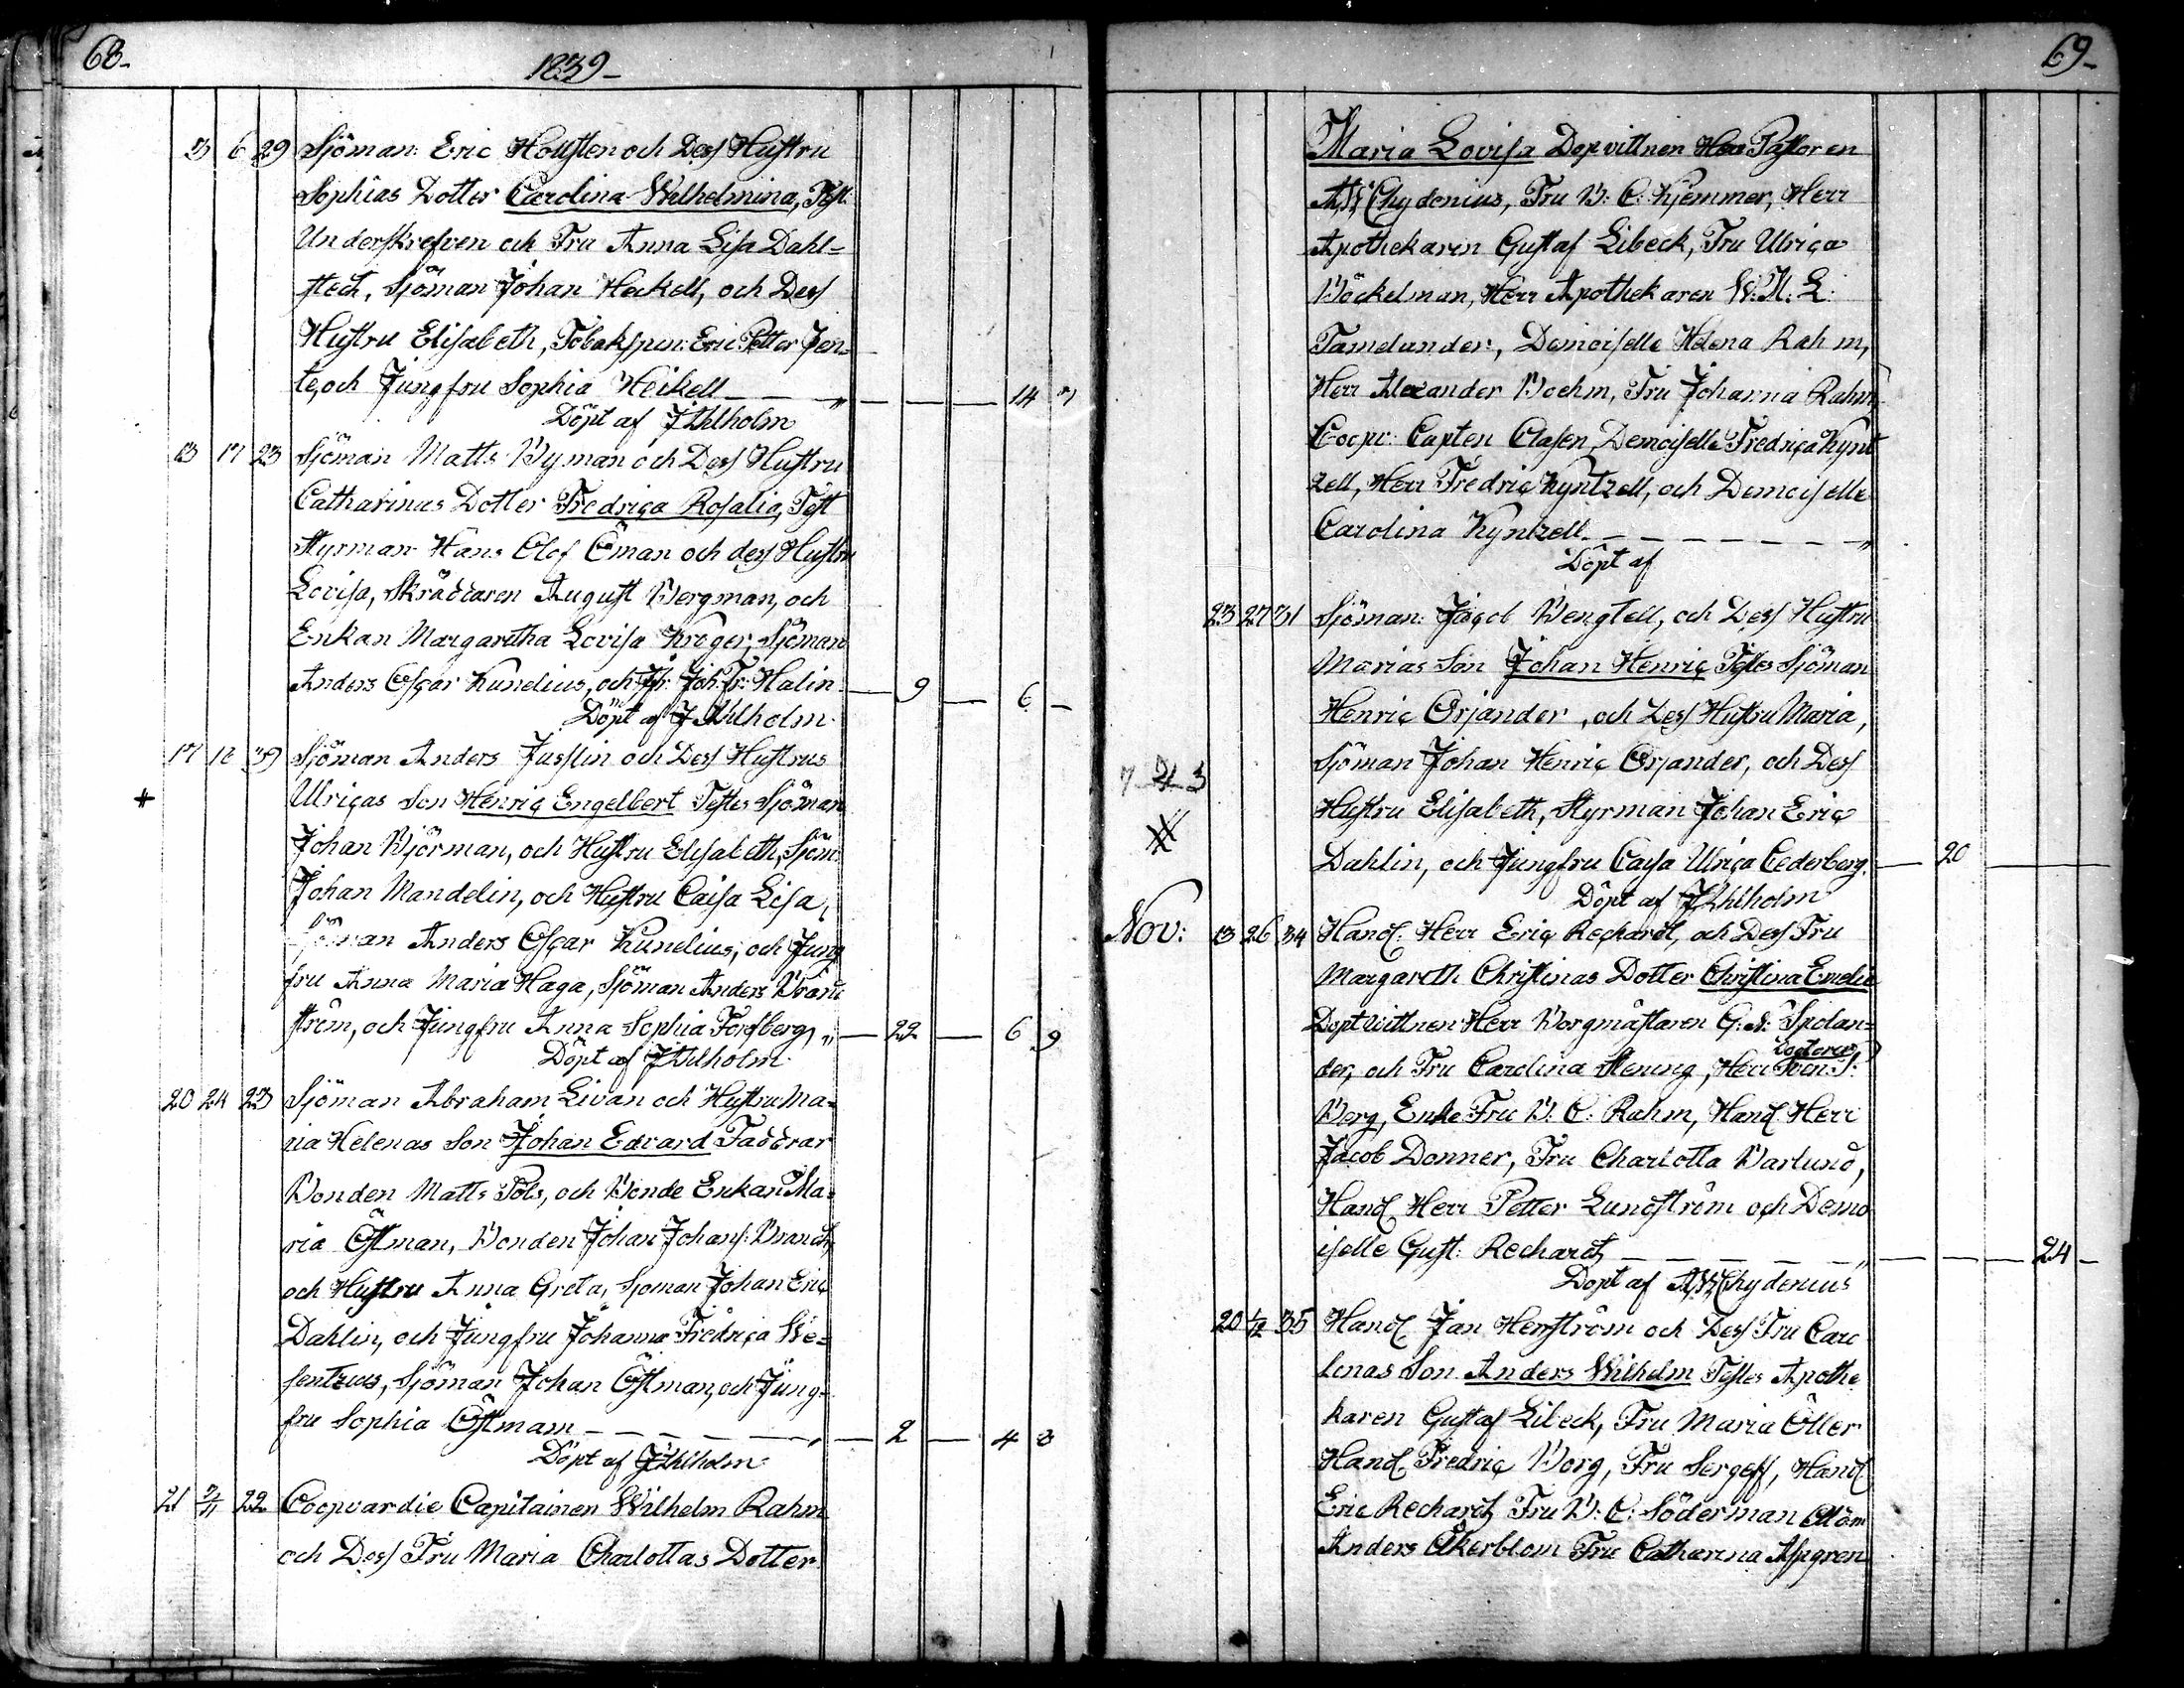 68.
1839
3 6 29 Sjöman: Eric Hollsten och Dess Hustru
Sophias Dotter Carolina Wilhelmina, Test:
Underskrefven och Fru Anna Lisa Dahl-
stedt, Sjöman Johan Heikell, och Dess
Hustru Elisabeth, Tobakspin: Eric Petter Jen-
te, och Jungfru Sophia Heikell 14
Döpt af J Uhlholm
13 17 23 Sjöman Matts Wyman och Dess Hustru
Catharinas Dotter Fredrica Rosalia, Test
Styrman Hans Olof Öman och dess Hustru
Lovisa, Skräddaren August Bergman, och
Enkan Margaretha Lovisa Kröger, Sjöman
Anders Oscar Kunelius, och Halin 9 6
Döpt af J Uhlholm
17 18 39 Sjöman Anders Jusslin och Dess Hustrus
+ Ulricas Son Henric Engelbert Testes Sjöman
Johan Björman, och Hustru Elisabeth, Sjöm:
Johan Mandelin, och Hustru Caisa Lisa,
Sjöman Anders Oscar Kunelius, och Jung
fru Anna Maria Haga, Sjöman Anders Bränn
ström, och Jungfru Anna Sophia Forsberg 22 6 9
Döpt af J Uhlholm
20 24 23 Sjöman Abraham Livan och Hustru Ma-
ria Helenas Son Johan Edvard Faddrar
Bonden Matts Pols, och Bonde Enkan Ma-
ria Östman, Bonden Johan Johans: Brandt,
och Hustru Anna Greta, Sjöman Johan Eric
Dahlin, och Jungfru Johanna Fredrica We-
sentzius, Sjöman Johan Östman, och Jung-
fru Sophia Östmam 2 4
Döpt af J Uhlholm
21 3/11 22 Coopvardie Capitainen Wilhelm Rahm
och Dess Fru Maria Charlottas Dotter
69
Maria Lovisa Dopvittnen Herr Pastoren
A W Chydenius, Fru B: C: Kjemmer, Herr
Apothekaren Gustaf Libeck, Fru Ulrica
Böckelman, Herr Apothekaren W: M: L:
Tamelander, Demoiselle Helena Rahm,
Herr Alexander Boehm, Fru Johanna Rahm,
Coopv: Capten Clasen, Demoiselle Fredrica Kynt
zell, Herr Fredric Kyntzell, och Demoiselle
Carolina Kyntzell
Döpt af
23 27 31 Sjöman: Jacob Bengtell, och Dess Hustru
Marias Son Johan Henric Testes Sjöman
Henric Orjander, och Dess Hustru Maria,
Sjöman Johan Henric Orjander, och Dess
Hustru Elisabeth, Styrman Johan Eric
Dahlin, och Jungfru Caisa Ulrica Cederberg. 20
Döpt af J Uhlholm
Nov: 13 26 34 Handl: Herr Eric Rechardt, och Dess Fru
Margareth Christinas Dotter Christina Emelie
Doptwittnen Herr Borgmästaren G: A: Spolan-
Doctoren
der, och Fru Carolina Stening, Herr Sven J:
Borg, Enke Fru B: C: Rahm, Handl Herr
Jacob Donner, Fru Charlotta Barlund,
Handl Herr Petter Lundström och Demo
iselle Gust: Rechardt 24
Döpt af A W Chydenius
20 1/12 35 Handl Jan Henström och Dess Fru Caro
linas Son Anders Wilhelm Testes Apothe
karen Gustaf Libeck, Fru Maria Öller
Handl Fredric Borg, Fru Sergeff, Handl
Eric Rechardt Fru B: C: Söderman
Anders Åkerblom Fru Catharina Aspgren